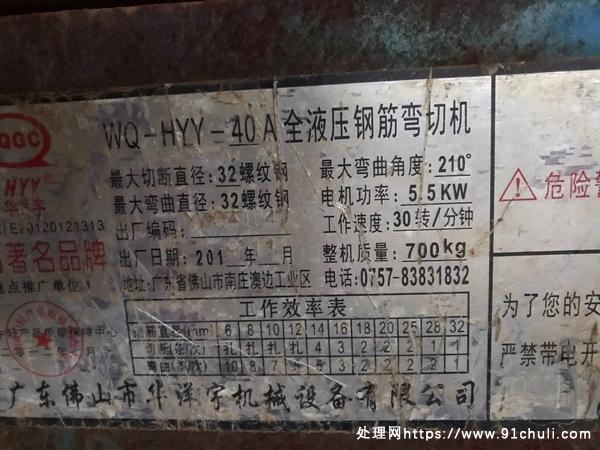 WQ-HYY-40A全液压钢筋弯切机
QGC
HYY
最大切断直径:32螺纹钢 最大弯曲角度:210°
最大弯曲直径:32螺纹钢 电机功率:5.5KW
出厂编码: 工作速度:30转/分钟
出厂日期:201 年 月 整机质量:700kg
地址:广东省佛山市南庄澳边工业区 电话:0757-83831832
E20120121313
著名品牌
点推广单位
工作效率表
筋直径 mm 6 8 10 12 14 16 18 20 25 28 32
切断(条/次) 扎 扎 扎 扎 4 3 2 2 2 1 1
弯曲(条/次) 10 8 7 4 5 3 2 2 1 1
广东佛山市华洋宇机械设备有限公司
危险
为了您的安
严禁带电开
处理网https://www.91chuli.com/